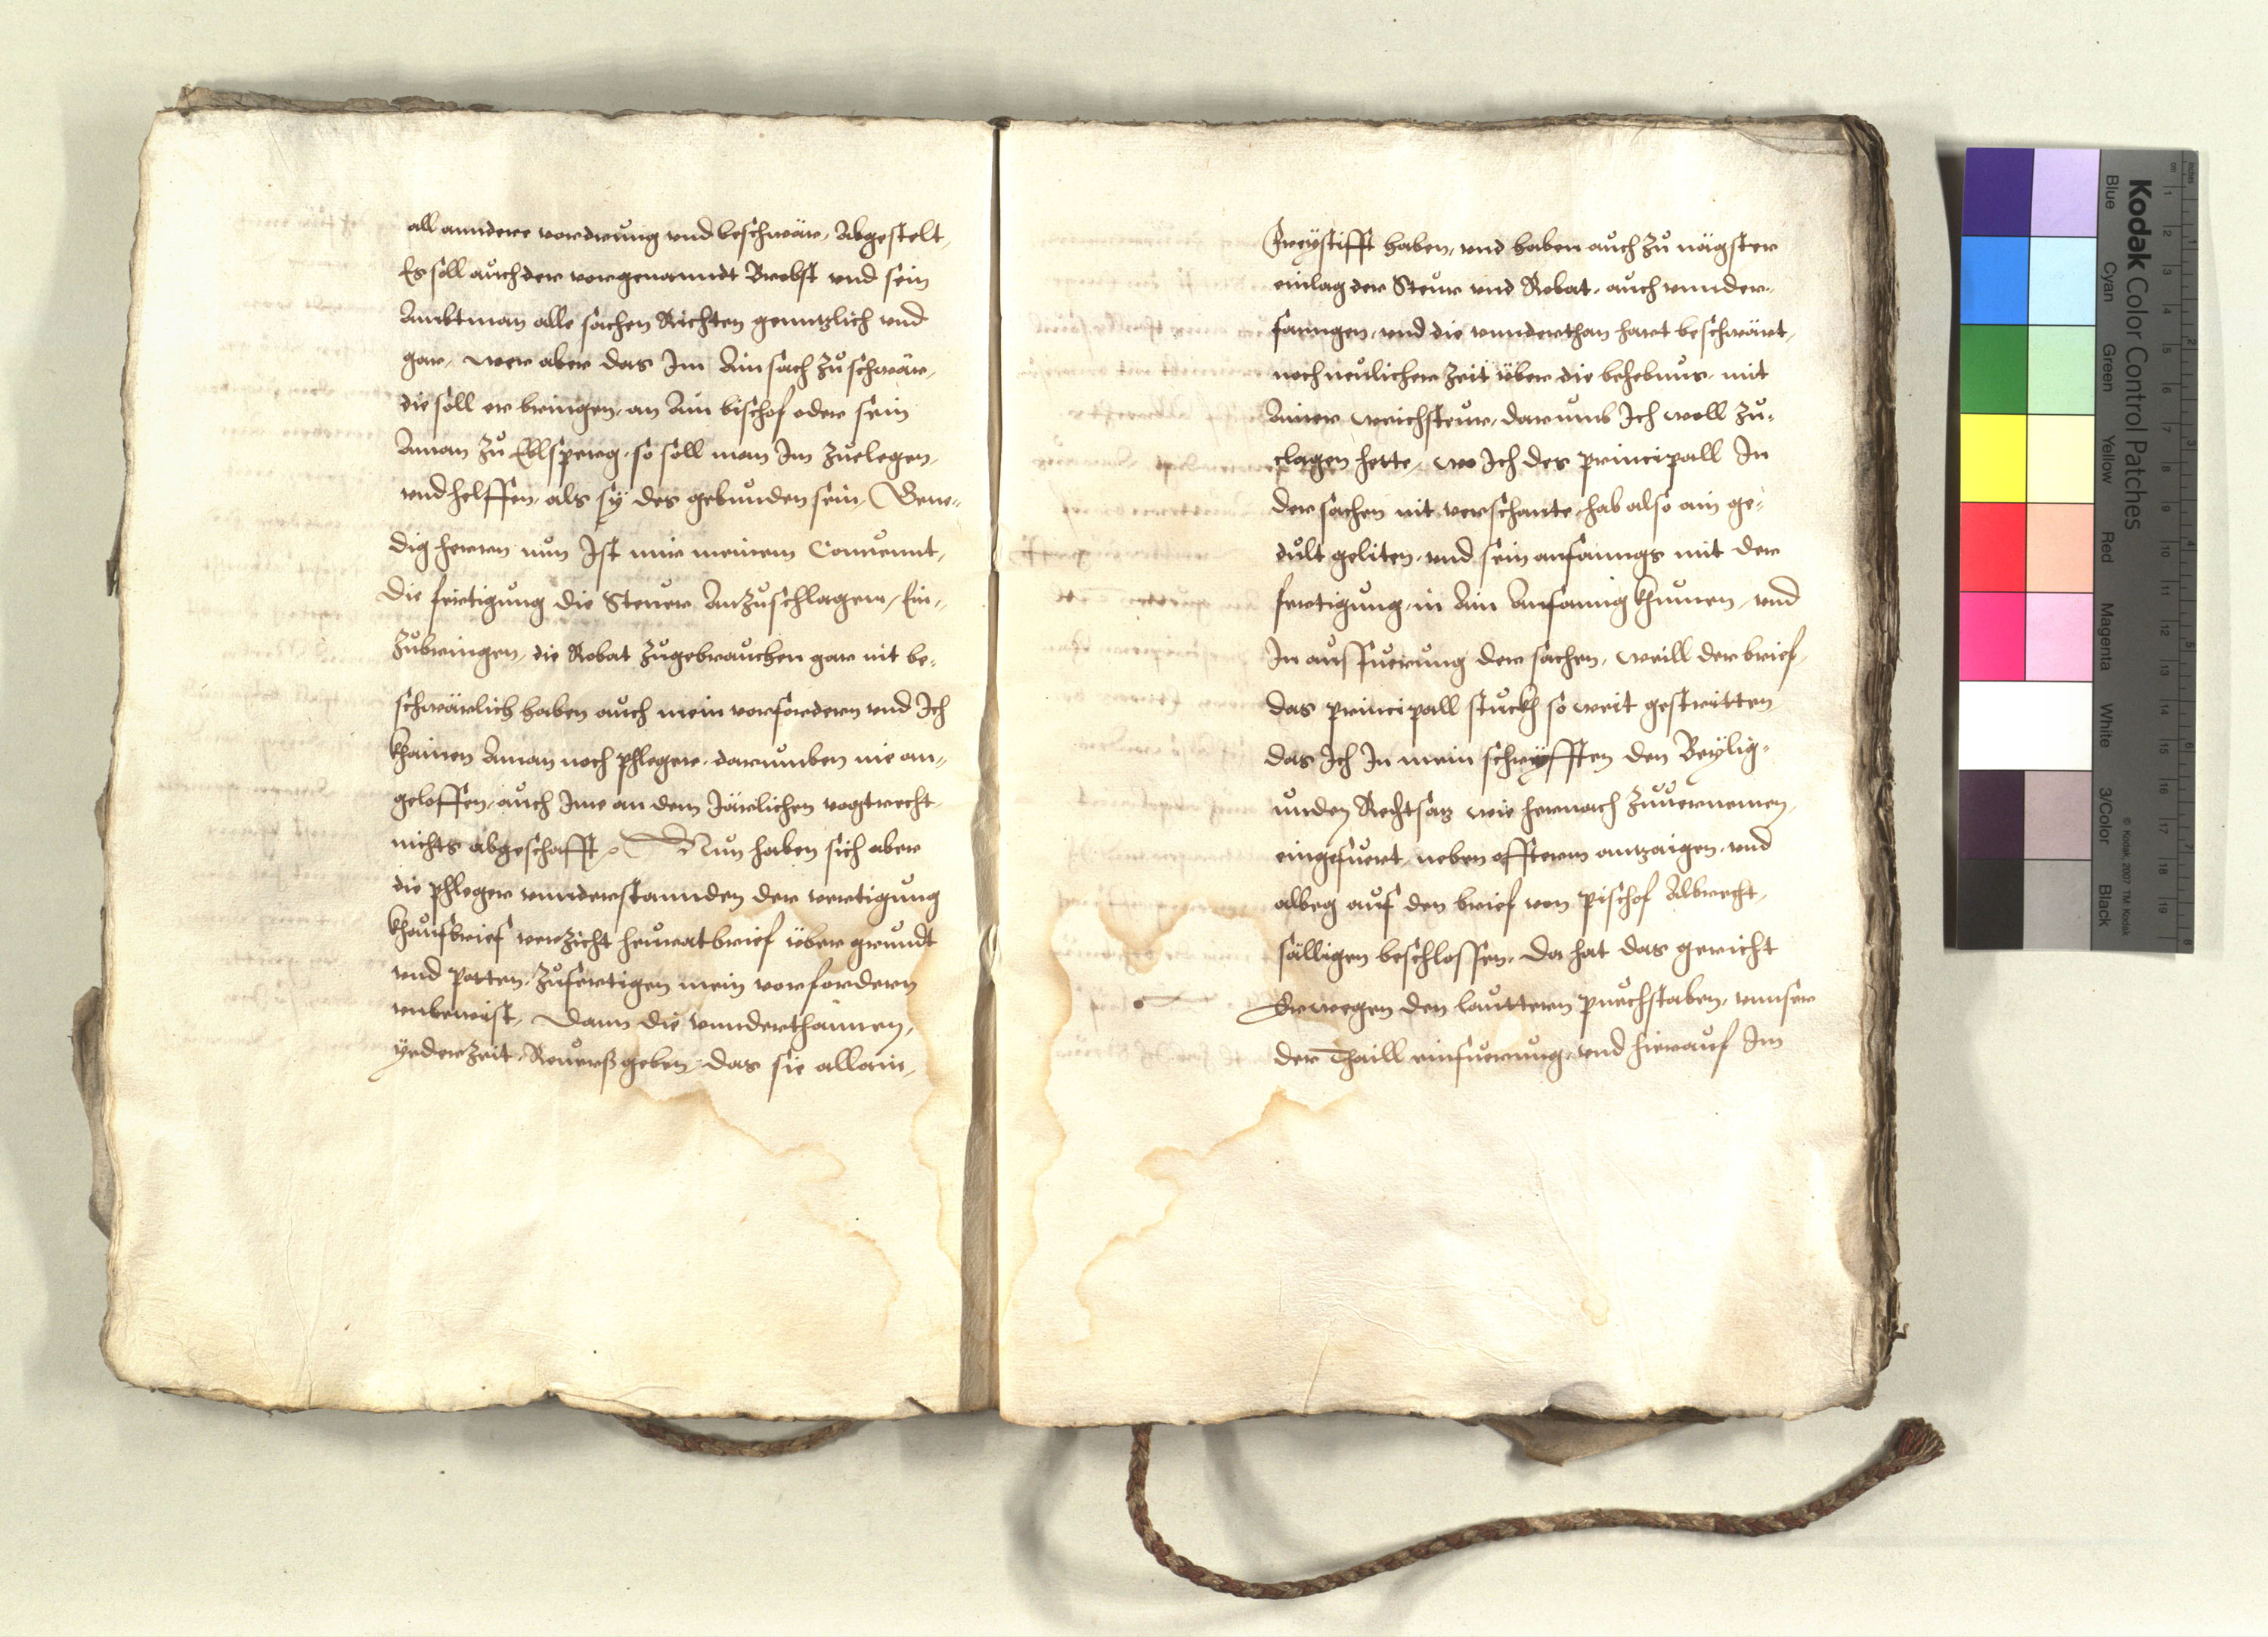 all anndere vordrung vnd beschwär, Abgestelt,
Es soll auch der vorgenanndt Brobst vnd sein
Ambtman alle sachen Richten genntzlich vnd
gar, wer aber das Im Ain sach zu schwär,
die soll er bringen, an Ain bischof oder sein
Aman zu Eblsperg, so soll man Im zuelegen,
vnd helffen, als sy des gebunden sein, Gene-
dig herrn nun Ist mir meinem Conuennt,
die fertigung die Steuer Anzuschlagen, Ein-
zubringen, die Robat zugebrauchen gar nit be-
schwärlich haben auch mein vorfordern vnd Ich
khainen Aman noch phleger, darumben nie an-
geloffen, auch Ime an dem Järlichen vogtrecht
nichts abgeschafft, Nun haben sich aber
die phleger vnnderstannden der vertigung
khaufbrief verzicht heuratbrief über grundt
vnd potten, zufertigen mein vorfordern
vnbewist, Dann die vnnderthannen,
yederzeit, Reuerß geben, das sie allain,
Freystifft haben, vnd haben auch zu nägster
einlag der Steur vnd Robat, auch vnnder-
fanngen, vnd die vnnderthan hart beschwärt,
noch neulicher zeit über die behebnus, mit
Ainer weichsteur, darumb Ich woll zu-
clagen hette, wo Ich des principall In
der sachen nit verschante, hab also ain ge-
dult geliten, vnd sein anfanngs mit der
fertigung, in Ain Anfanng khumen, vnd
In ausfuerung der sachen, weill der brief,
das principall stuckh so weit gestritten
das Ich In mein schryfften den Beylig-
unden Rechtsatz wie hernach zuuernemen,
eingefuert, neben offterm antzaigen, vnd
albeg auf den brief von pischof Albrecht,
sälligen beschlossen, Da hat das gericht
Erwegen den lauttern puechstaben, vnnser
der Thaill einfuerung, vnd hierauf Im
Kodak Color Control Patches
Blue Cyan Green Yellow Red Magenta White 3/Color Black
© Kodak, 2007 TM: Kodak